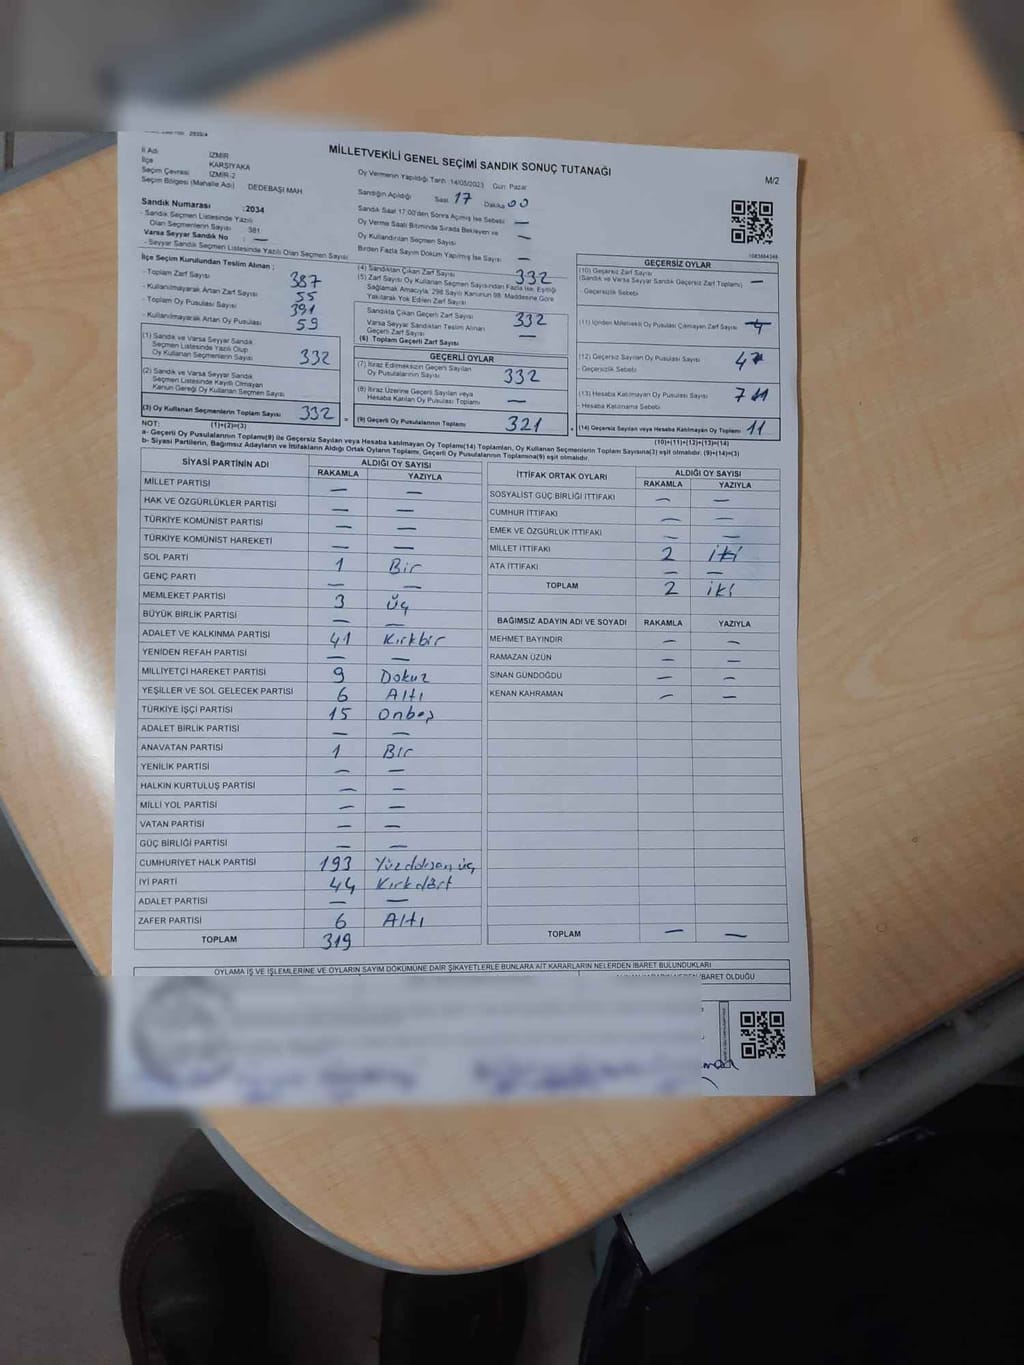 MİLLETVEKİLİ GENEL SEÇİMİ SANDIK SONUÇ TUTANAĞI
M/2
İl Adı İZMİR
İlçe KARŞIYAKA
Seçim Çevresi İZMİR-2
Seçim Bölgesi (Mahalle Adı) DEDEBAŞI MAH
Sandık Numarası :2034
- Sandık Seçmen Listesinde Yazılı
Olan Seçmenlerin Sayısı 381
Varsa Seyyar Sandık No : —
- Seyyar Sandık Seçmen Listesinde Yazılı Olan Seçmen Sayısı
Oy Vermenin Yapıldığı Tarih :14/05/2023 Gün: Pazar
Sandığın Açıldığı Saat 17 Dakika 00
Sandık Saat 17:00'den Sonra Açılmış İse Sebebi —
Oy Verme Saati Bitiminde Sırada Bekleyen ve
Oy Kullandırılan Seçmen Sayısı —
Birden Fazla Sayım Döküm Yapılmış İse Sayısı —
İlçe Seçim Kurulundan Teslim Alınan :
- Toplam Zarf Sayısı 387
- Kullanılmayarak Artan Zarf Sayısı 55
- Toplam Oy Pusulası Sayısı 391
- Kullanılmayarak Artan Oy Pusulası 59
(1) Sandık ve Varsa Seyyar Sandık
Seçmen Listesinde Yazılı Olup
Oy Kullanan Seçmenlerin Sayısı 332
(2) Sandık ve Varsa Seyyar Sandık
Seçmen Listesinde Kayıtlı Olmayan
Kanun Gereği Oy Kullanan Seçmen Sayısı
(3) Oy Kullanan Seçmenlerin Toplam Sayısı 332 =
(1)+(2)=(3)
(4) Sandıktan Çıkan Zarf Sayısı 332
(5) Zarf Sayısı Oy Kullanan Seçmen Sayısından Fazla İse, Eşitliği
Sağlamak Amacıyla; 298 Sayılı Kanunun 98. Maddesine Göre
Yakılarak Yok Edilen Zarf Sayısı
Sandıkta Çıkan Geçerli Zarf Sayısı 332
Varsa Seyyar Sandıktan Teslim Alınan
Geçerli Zarf Sayısı —
(6) Toplam Geçerli Zarf Sayısı
GEÇERLİ OYLAR
(7) İtiraz Edilmeksizin Geçerli Sayılan
Oy Pusulalarının Sayısı 332
(8) İtiraz Üzerine Geçerli Sayılan veya
Hesaba Katılan Oy Pusulası Toplamı —
(9) Geçerli Oy Pusulalarının Toplamı 321 +
GEÇERSİZ OYLAR
(10) Geçersiz Zarf Sayısı
(Sandık ve Varsa Seyyar Sandık Geçersiz Zarf Toplamı) —
- Geçersizlik Sebebi
(11) İçinden Milletvekili Oy Pusulası Çıkmayan Zarf Sayısı
(12) Geçersiz Sayılan Oy Pusulası Sayısı 4
- Geçersizlik Sebebi
(13) Hesaba Katılmayan Oy Pusulası Sayısı 7
- Hesaba Katılmama Sebebi
(14) Geçersiz Sayılan veya Hesaba Katılmayan Oy Toplamı 11
(10)+(11)+(12)+(13)=(14)
NOT:
a- Geçerli Oy Pusulalarının Toplamı(9) ile Geçersiz Sayılan veya Hesaba katılmayan Oy Toplamı(14) Toplamları, Oy Kullanan Seçmenlerin Toplam Sayısına(3) eşit olmalıdır. (9)+(14)=(3)
b- Siyasi Partilerin, Bağımsız Adayların ve İttifakların Aldığı Ortak Oyların Toplamı, Geçerli Oy Pusulalarının Toplamına(9) eşit olmalıdır.
SİYASİ PARTİNİN ADI ALDIĞI OY SAYISI
RAKAMLA YAZIYLA
MİLLET PARTİSİ — —
HAK VE ÖZGÜRLÜKLER PARTİSİ — —
TÜRKİYE KOMÜNİST PARTİSİ — —
TÜRKİYE KOMÜNİST HAREKETİ — —
SOL PARTİ 1 Bir
GENÇ PARTİ — —
MEMLEKET PARTİSİ 3 Üç
BÜYÜK BİRLİK PARTİSİ — —
ADALET VE KALKINMA PARTİSİ 41 Kırkbir
YENİDEN REFAH PARTİSİ — —
MİLLİYETÇİ HAREKET PARTİSİ 9 Dokuz
YEŞİLLER VE SOL GELECEK PARTİSİ 6 Altı
TÜRKİYE İŞÇİ PARTİSİ 15 Onbeş
ADALET BİRLİK PARTİSİ — —
ANAVATAN PARTİSİ 1 Bir
YENİLİK PARTİSİ — —
HALKIN KURTULUŞ PARTİSİ — —
MİLLİ YOL PARTİSİ — —
VATAN PARTİSİ — —
GÜÇ BİRLİĞİ PARTİSİ — —
CUMHURİYET HALK PARTİSİ 193 Yüzdoksan üç
İYİ PARTİ 44 Kırkdört
ADALET PARTİSİ — —
ZAFER PARTİSİ 6 Altı
TOPLAM 319
İTTİFAK ORTAK OYLARI ALDIĞI OY SAYISI
RAKAMLA YAZIYLA
SOSYALİST GÜÇ BİRLİĞİ İTTİFAKI — —
CUMHUR İTTİFAKI — —
EMEK VE ÖZGÜRLÜK İTTİFAKI — —
MİLLET İTTİFAKI 2 iki
ATA İTTİFAKI — —
TOPLAM 2 iki
BAĞIMSIZ ADAYIN ADI VE SOYADI RAKAMLA YAZIYLA
MEHMET BAYINDIR — —
RAMAZAN UZUN — —
SİNAN GÜNDOĞDU — —
KENAN KAHRAMAN — —
TOPLAM — —
OYLAMA İŞ VE İŞLEMLERİNE VE OYLARIN SAYIM DÖKÜMÜNE DAİR ŞİKAYETLERLE BUNLARA AİT KARARLARIN NELERDEN İBARET BULUNDUKLARI
İBARET OLDUĞU